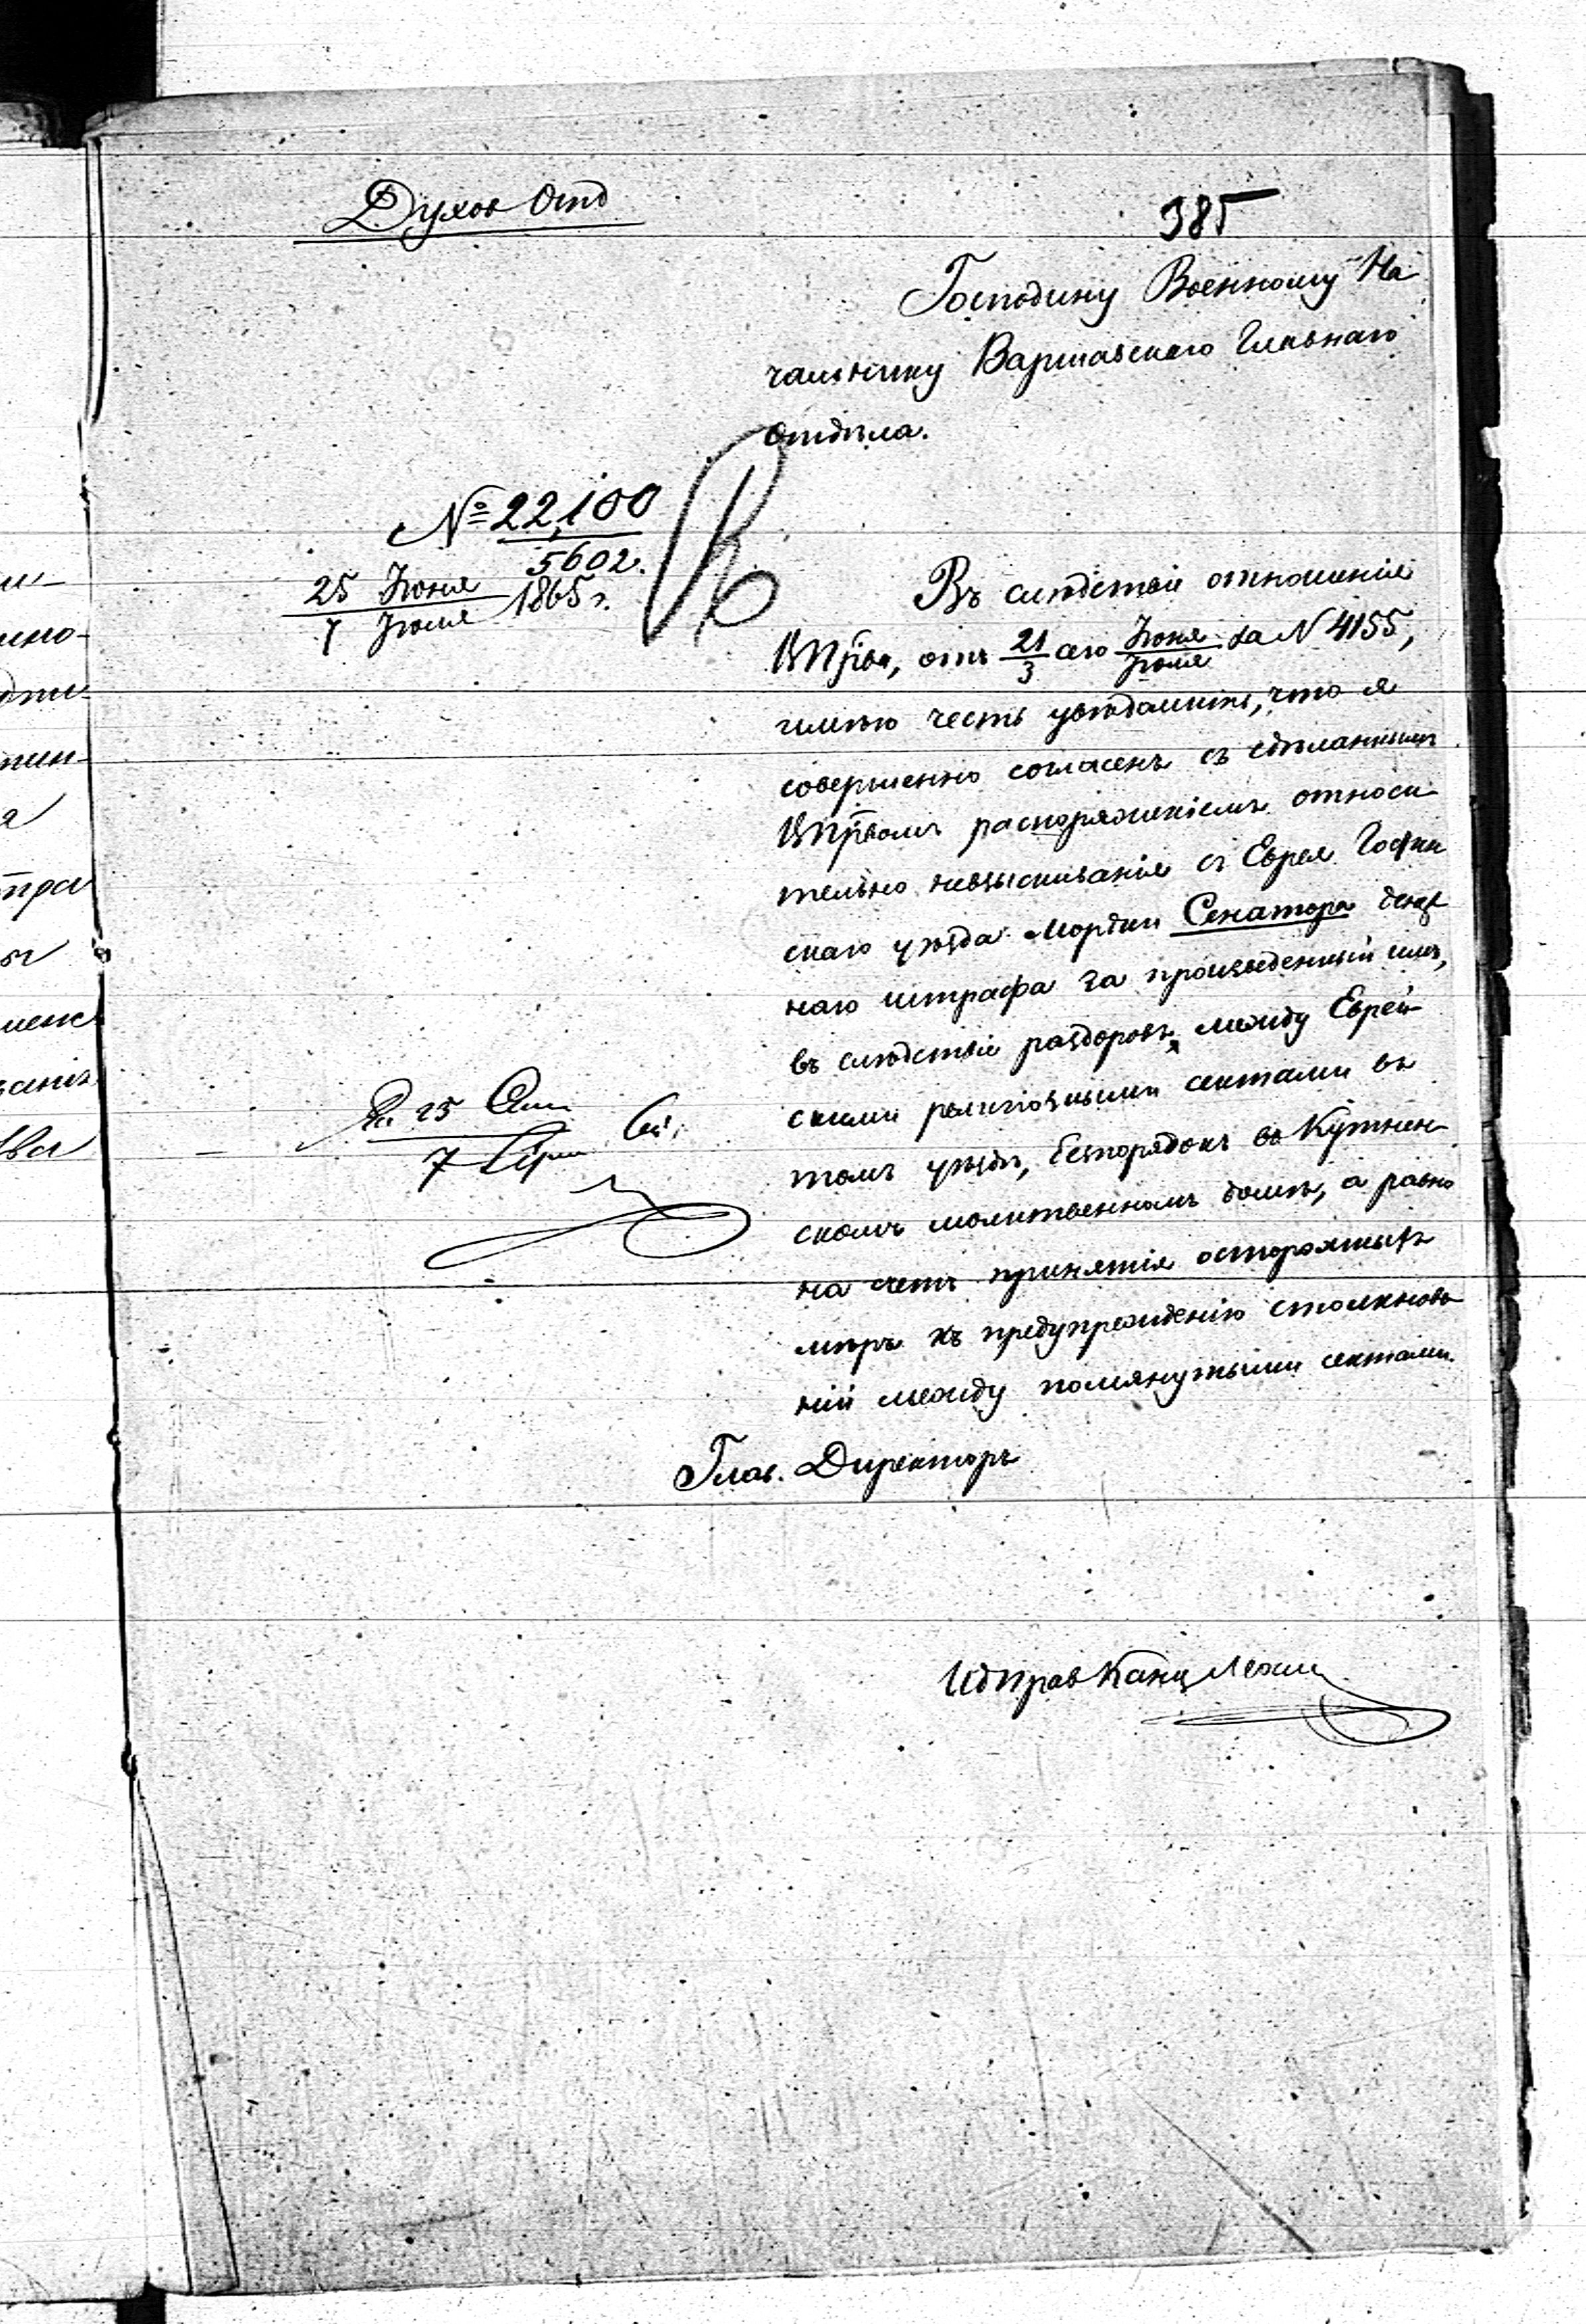 Духов Отд
385
Господину Военному На
чальнику Варшавскаго Главнаго
Отдѣла.
№ 22,100
5602.
25 Іюня
7 Іюля 1865 г.
Въ слѣдствіе отношенія
ВПрва, отъ 21/3 сего Іюня/Іюля за N 4155,
имѣю честь увѣдомить, что я
совершенно согласенъ съ сдѣланнымъ
ВПрвомъ распоряженіемъ относи
тельно невзысканія съ Еврея Гостын
скаго уѣзда Мордки Сенатора денеж
наго штрафа за произведенный имъ,
въ слѣдствіе раздоровъ между Еврей
скими религіозными сектами въ
томъ уѣздѣ, безпорядокъ въ Кутнен
скомъ молитвенномъ домѣ, а равно
на счетъ принятія осторожныхъ
мѣръ къ предупрежденію столкнове
ній между помянутыми сектами.
25
7
Глав. Директоръ
Прав Канц